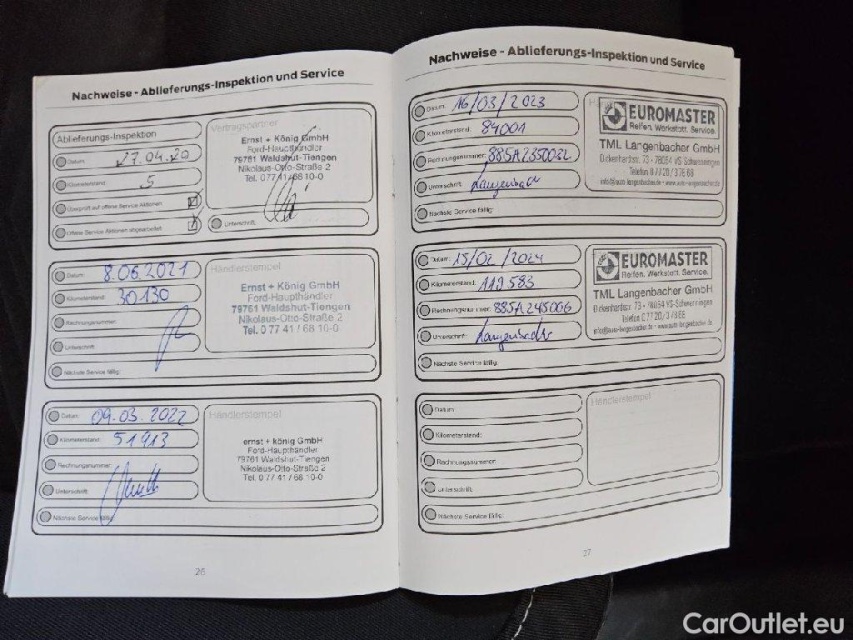 Nachweise - Ablieferungs-Inspektion und Service
Ablieferungs-Inspektion
Datum: 27.04.20
Kilometerstand: 5
Überprüft auf offene Service Aktionen
Offene Service Aktionen abgearbeitet
Vertragspartner
Ernst + König GmbH
Ford-Haupthändler
79761 Waldshut-Tiengen
Nikolaus-Otto-Straße 2
Tel. 0 77 41 / 68 10-0
Unterschrift:
Datum: 8.06.2021
Kilometerstand: 30130
Rechnungsnummer:
Unterschrift:
Nächste Service fällig:
Händlerstempel
Ernst + König GmbH
Ford-Haupthändler
79761 Waldshut-Tiengen
Nikolaus-Otto-Straße 2
Tel. 0 77 41 / 68 10-0
Datum: 09.03.2022
Kilometerstand: 51913
Rechnungsnummer:
Unterschrift:
Nächste Service fällig:
Händlerstempel
ernst + könig GmbH
Ford-Haupthändler
79761 Waldshut-Tiengen
Nikolaus-Otto-Straße 2
Tel. 0 77 41 / 68 10-0
26
Nachweise - Ablieferungs-Inspektion und Service
Datum: 16/03/2023
Kilometerstand: 84001
Rechnungsnummer:
Unterschrift: Langenbach
Nächste Service fällig:
EUROMASTER
Reifen. Werkstatt. Service.
TML Langenbacher GmbH
Datum: 15/02/2024
Kilometerstand: 112583
Rechnungsnummer: 885A245006
Unterschrift: Langenbach
Nächste Service fällig:
EUROMASTER
Reifen. Werkstatt. Service.
TML Langenbacher GmbH
Datum:
Kilometerstand:
Rechnungsnummer:
Unterschrift:
Nächste Service fällig:
Händlerstempel
27
CarOutlet.eu